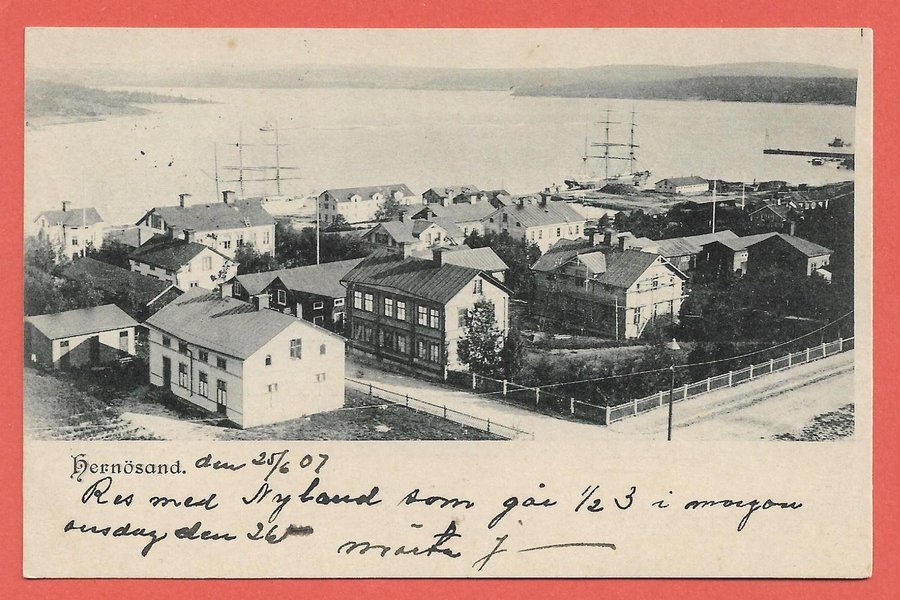 Hernösand. den 25/6 07
Res med Nyland som går 1/2 3 i morgon
onsdag den 26
Märta J